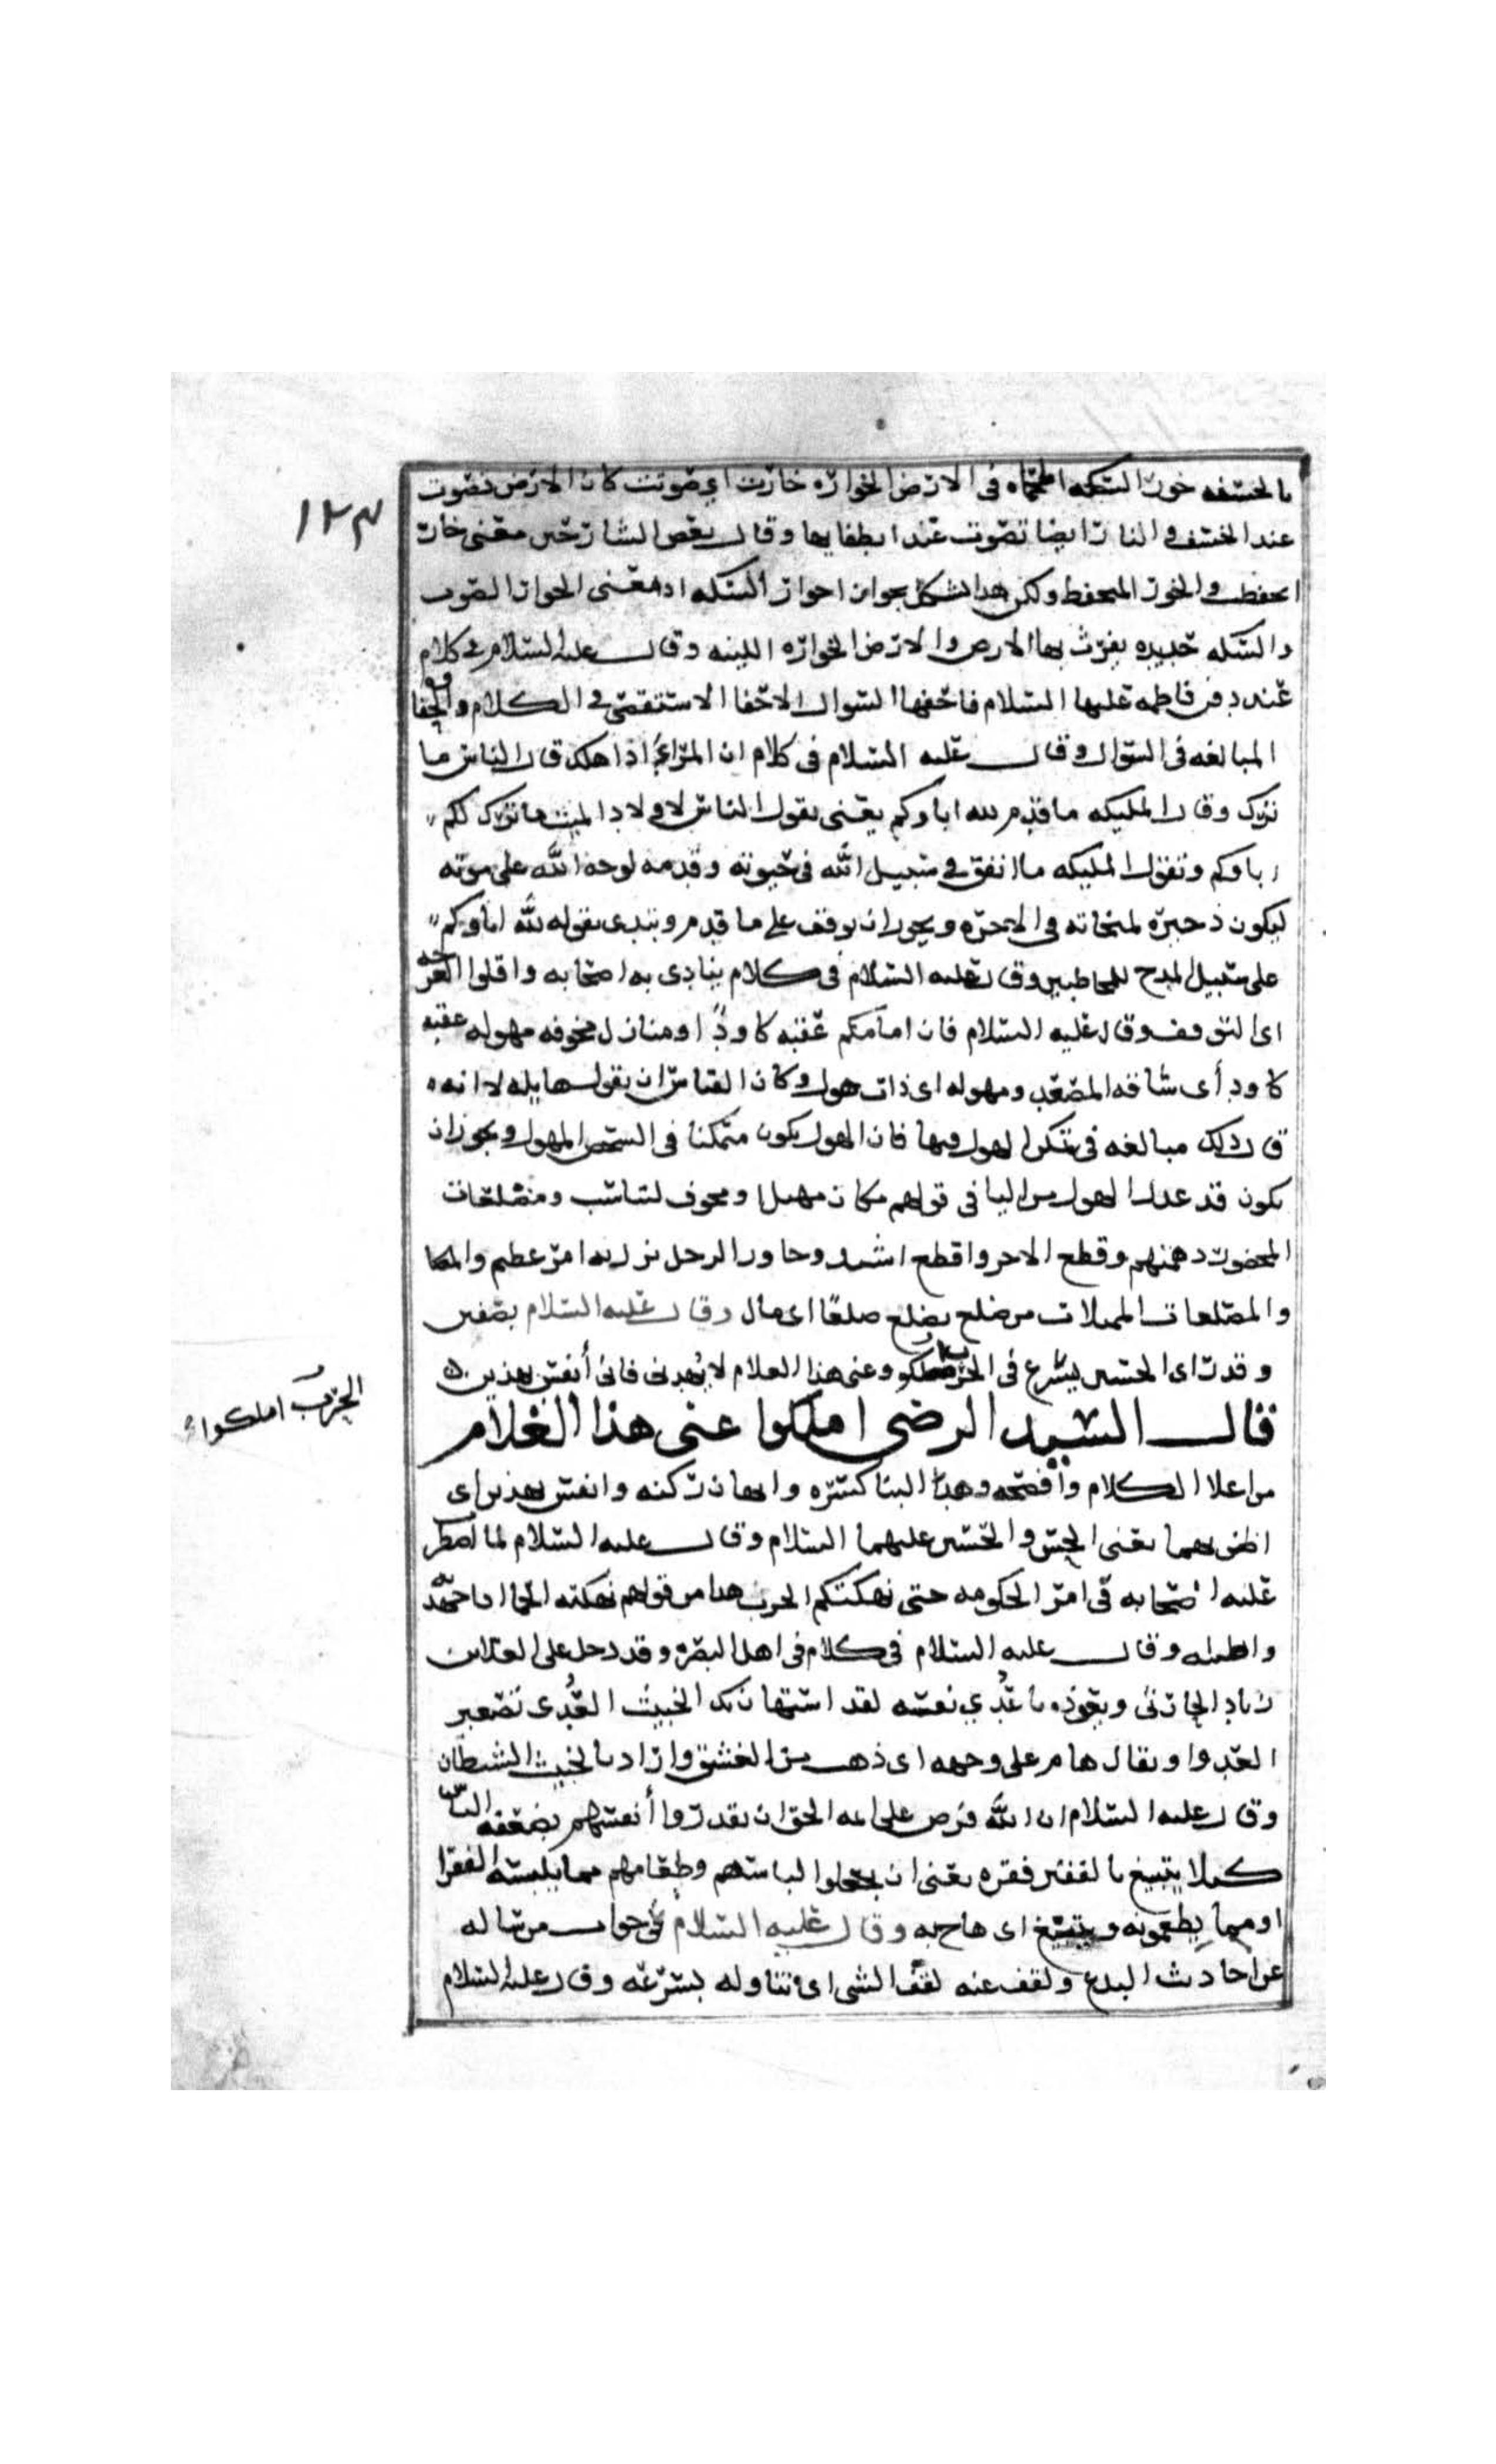 بالخسفه خور السكه المحماه فى الارض الخواره خارت اي صوتت كان الارض تصوت
عند الخسف و النار ايضا تصوت عند اطفايها وقال بعض الشارحين معنى خارت
انخفظت و الخور المنخفظ ولكن هذا شكل بجوار احوار السكه اد معنى الخوار الصوت
والسكه حديده يحرث بها الارض والارض الخواره اللينه وقال عليه السلام فى كلام
عند دفن فاطمه عليها السلام فاحفها السوال الاحفا الاستقصى فى الكلام و
المبالغه فى السوال وقال عليه السلام فى كلام ان المرء اذا هلك قال الناس ما
ترك وقال المليكه ما قدم لله اباوكم يعنى يقول الناس لاولاد الميت ما ترك لكم
اباوكم وتقول المليكه ما انفق فى سبيل الله فى حيوته وقدمه لوجه الله على موته
ليكون ذخيره لمنجاته فى الاخره ويجوز ان يوقف على ما قدم ويبتدى بقوله لله اباوكم
على سبيل المدح للمخاطبين وقال عليه السلام فى كلام ينادى به اصحابه واقلوا العرجه
اى التوقف وقال عليه السلام فان امامكم عقبه كاودًا ومنازل مخوفه مهوله عقبه
كاود أى شاقه المصعد ومهوله اى ذات هول وكان القياس ان يقول هايله لا انه
قال ذلك مبالغه فى تنكر الهول فيها فان الهول يكون متمكنا فى الشخص المهول ويجوز ان
يكون قد عدل الهول من اليا فى قولهم مكان مهيل ومخوف لتناسب ومضلعات
المحضور دهمتهم وقطع الامر واقطع اشتد وجاوز الرجل نزل به امر عظيم
والمضلعات المميلات من ضلع يضلع ضلعًا اى مال وقال عليه السلام بصفين
وقد راى الحسن يشرع فى الحرب املكو عنى هذا الغلام لا يهدنى فانى أنفس بهذين
قال السيد الرضى املكوا عنى هذا الغلام
من اعلا الكلام وأفصحه وهد البنا كسره وابهان ركنه وانفس بهذين اى
اظن بهما يعنى الحسن والحسين عليهما السلام وقال عليه السلام لما اضطر
عليه اصحابه فى امر الحكومه حتى نهكتكم الحرب هدا من قولهم نهكته الحما ادا جهدته
وقال عليه السلام فى كلام فى اهل البصره وقد دخل على العلا بن
زياد الحارثى يعوذه يا عُدَي نفسه لقد استهان بك الخبيث العُدَى تصغير
العدو ويقال هام على وجهه اى ذهب من العشق واراد بالخبيث الشيطان
وقال عليه السلام ان الله فرض على ايمه الحق ان يقدروا أنفسهم بضعفه الناس
كيلا يتبيغ بالفقير فقره يعنى ان يجعلوا لباسهم وطعامهم مما يلبسه الفقرا
او مما يطعمونه ويتبيغ اى هاج به وقال عليه السلام فى جواب من ساله
عن احاديث البدع ولقف عنه لقف الشى اى تناوله بسرعه وقال عليه السلام
١٢٣
الحرب املكوا